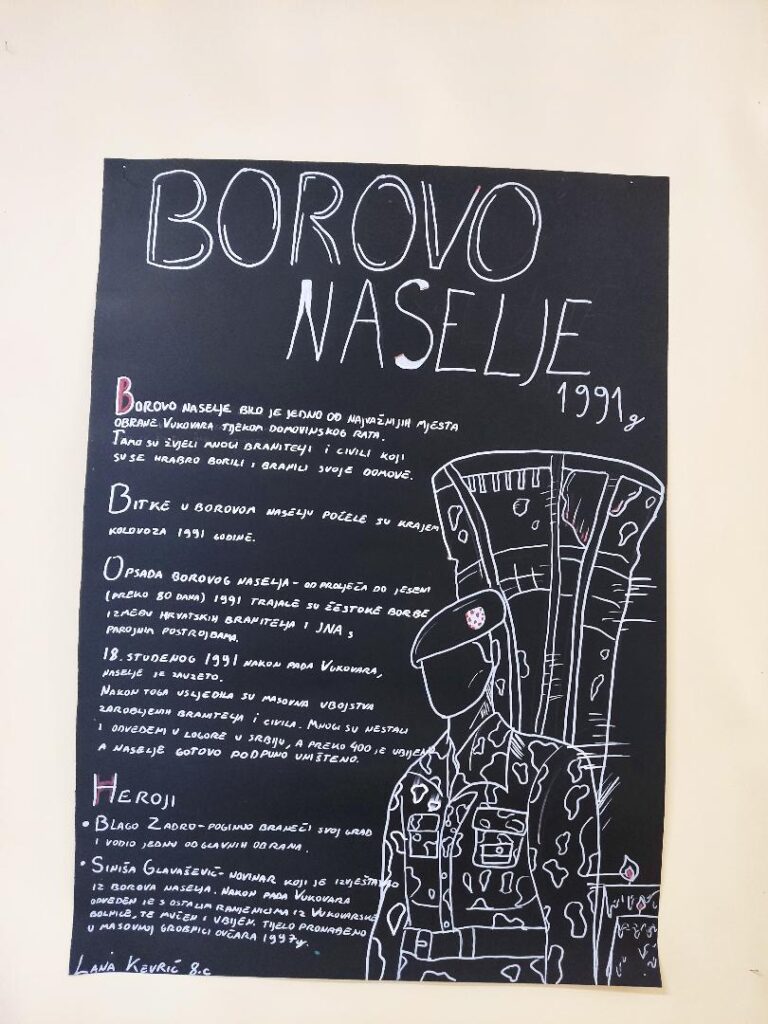 BOROVO
NASELJE
1991g
BOROVO NASELJE BILO JE JEDNO OD NAJVAŽNIJIH MJESTA
OBRANE VUKOVARA TIJEKOM DOMOVINSKOG RATA.
TAMO SU ŽIVJELI MNOGI BRANITELJI I CIVILI KOJI
SU SE HRABRO BORILI I BRANILI SVOJE DOMOVE.
BITKE U BOROVOM NASELJU POČELE SU KRAJEM
KOLOVOZA 1991 GODINE.
OPSADA BOROVOG NASELJA - OD PROLJEĆA DO JESENI
(PREKO 80 DANA) 1991 TRAJALE SU ŽESTOKE BORBE
IZMEĐU HRVATSKIH BRANITELJA I JNA S
POSTROJBAMA.
18. STUDENOG 1991 NAKON PADA VUKOVARA,
NASELJE JE ZAUZETO.
NAKON TOGA USLJEDILA SU MASOVNA UBOJSTVA
ZAROBLJENIH BRANITELJA I CIVILA. MNOGI SU NESTALI
I ODVEDENI U LOGORE U SRBIJU, A PREKO 400 JE UBIJENO
A NASELJE GOTOVO PODPUNO UNIŠTENO.
HEROJI
• BLAGO ZADRO - POGINUO BRANEĆI SVOJ GRAD
I VODIO JEDNU OD GLAVNIH OBRANA.
• SINIŠA GLAVAŠEVIĆ - NOVINAR KOJI JE IZVJEŠTAVAO
IZ BOROVA NASELJA. NAKON PADA VUKOVARA
ODVEDEN JE S OSTALIM RANJENICIMA IZ VUKOVARSKE
BOLNICE, TE MUČEN I UBIJEN. TIJELO PRONAĐENO
U MASOVNOJ GROBNICI OVČARA 1997g.
LANA KEVRIĆ 8.c